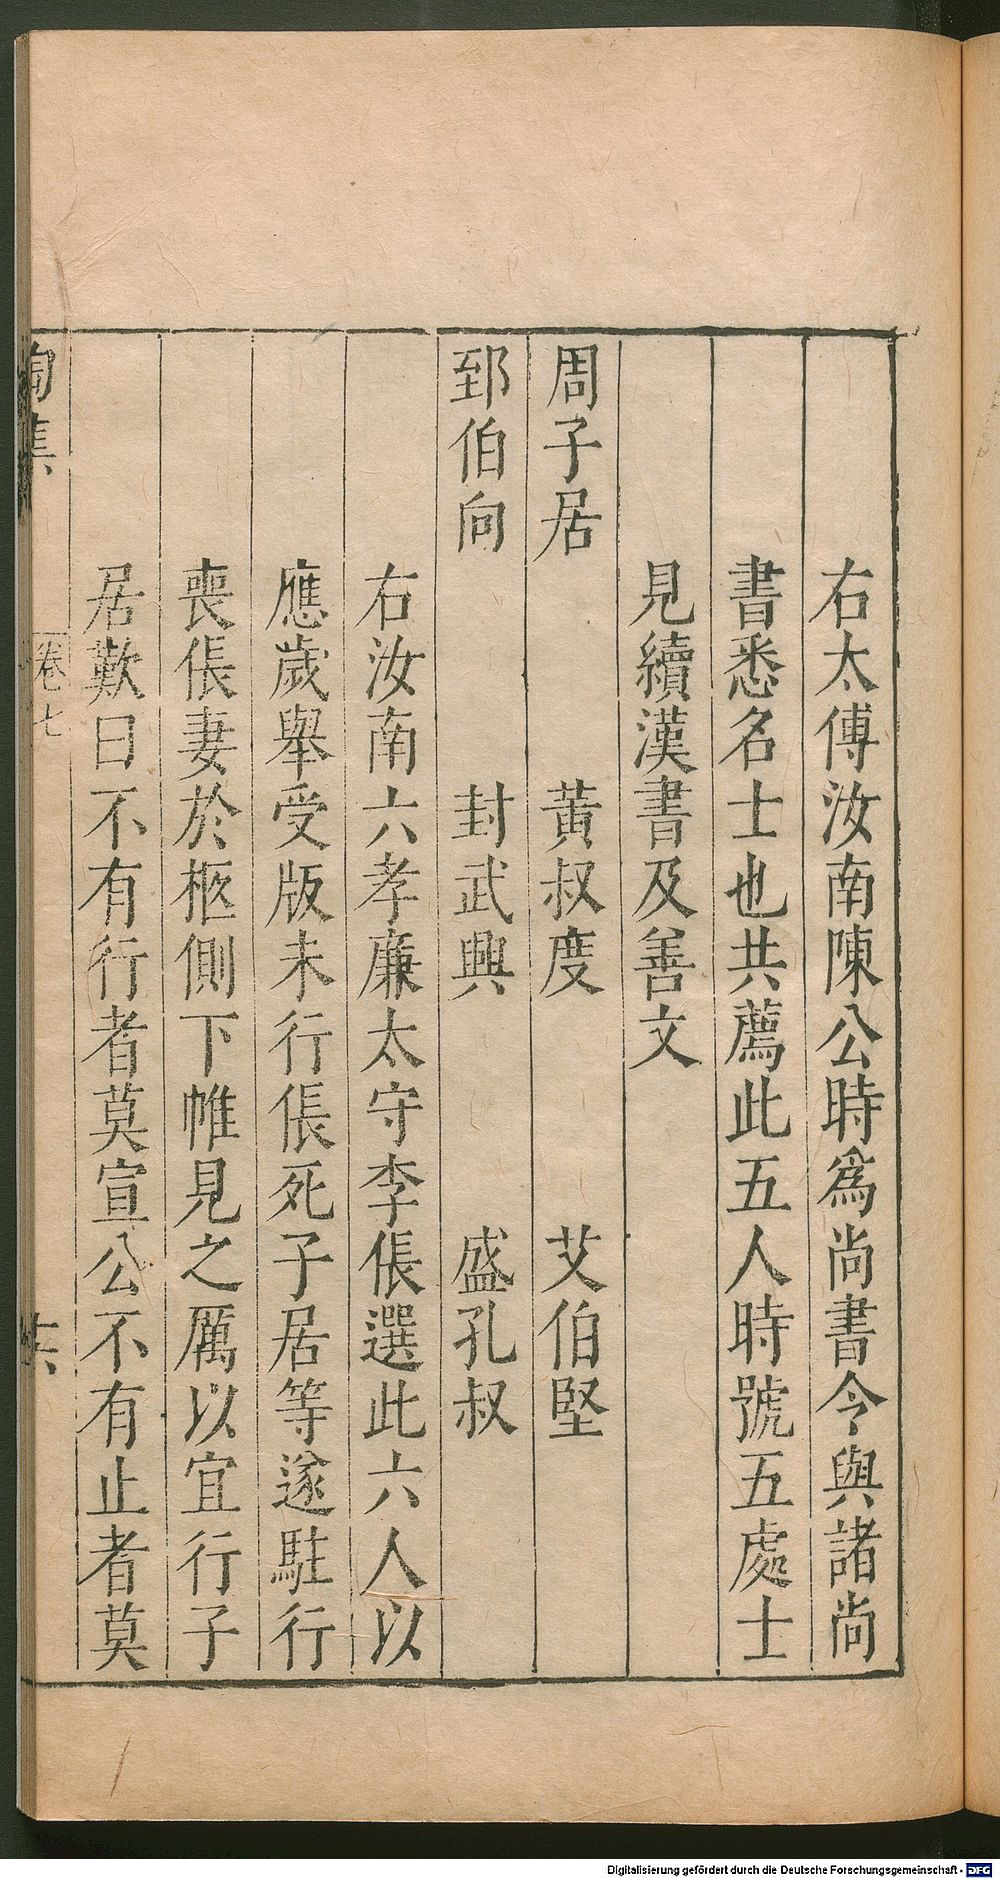 右太傅汝南陳公時爲尚書令與諸尚
書悉名士也共薦此五人時號五處士
見續漢書及善文
周子居 黃叔度 艾伯堅
郅伯向 封武興 盛孔叔
右汝南六孝廉太守李倀選此六人以
應歲舉受版未行倀死子居等遂駐行
喪倀妻於柩側下帷見之厲以宜行子
居歎曰不有行者莫宣公不有止者莫
陶集 卷七
Digitalisierung gefördert durch die Deutsche Forschungsgemeinschaft - DFG